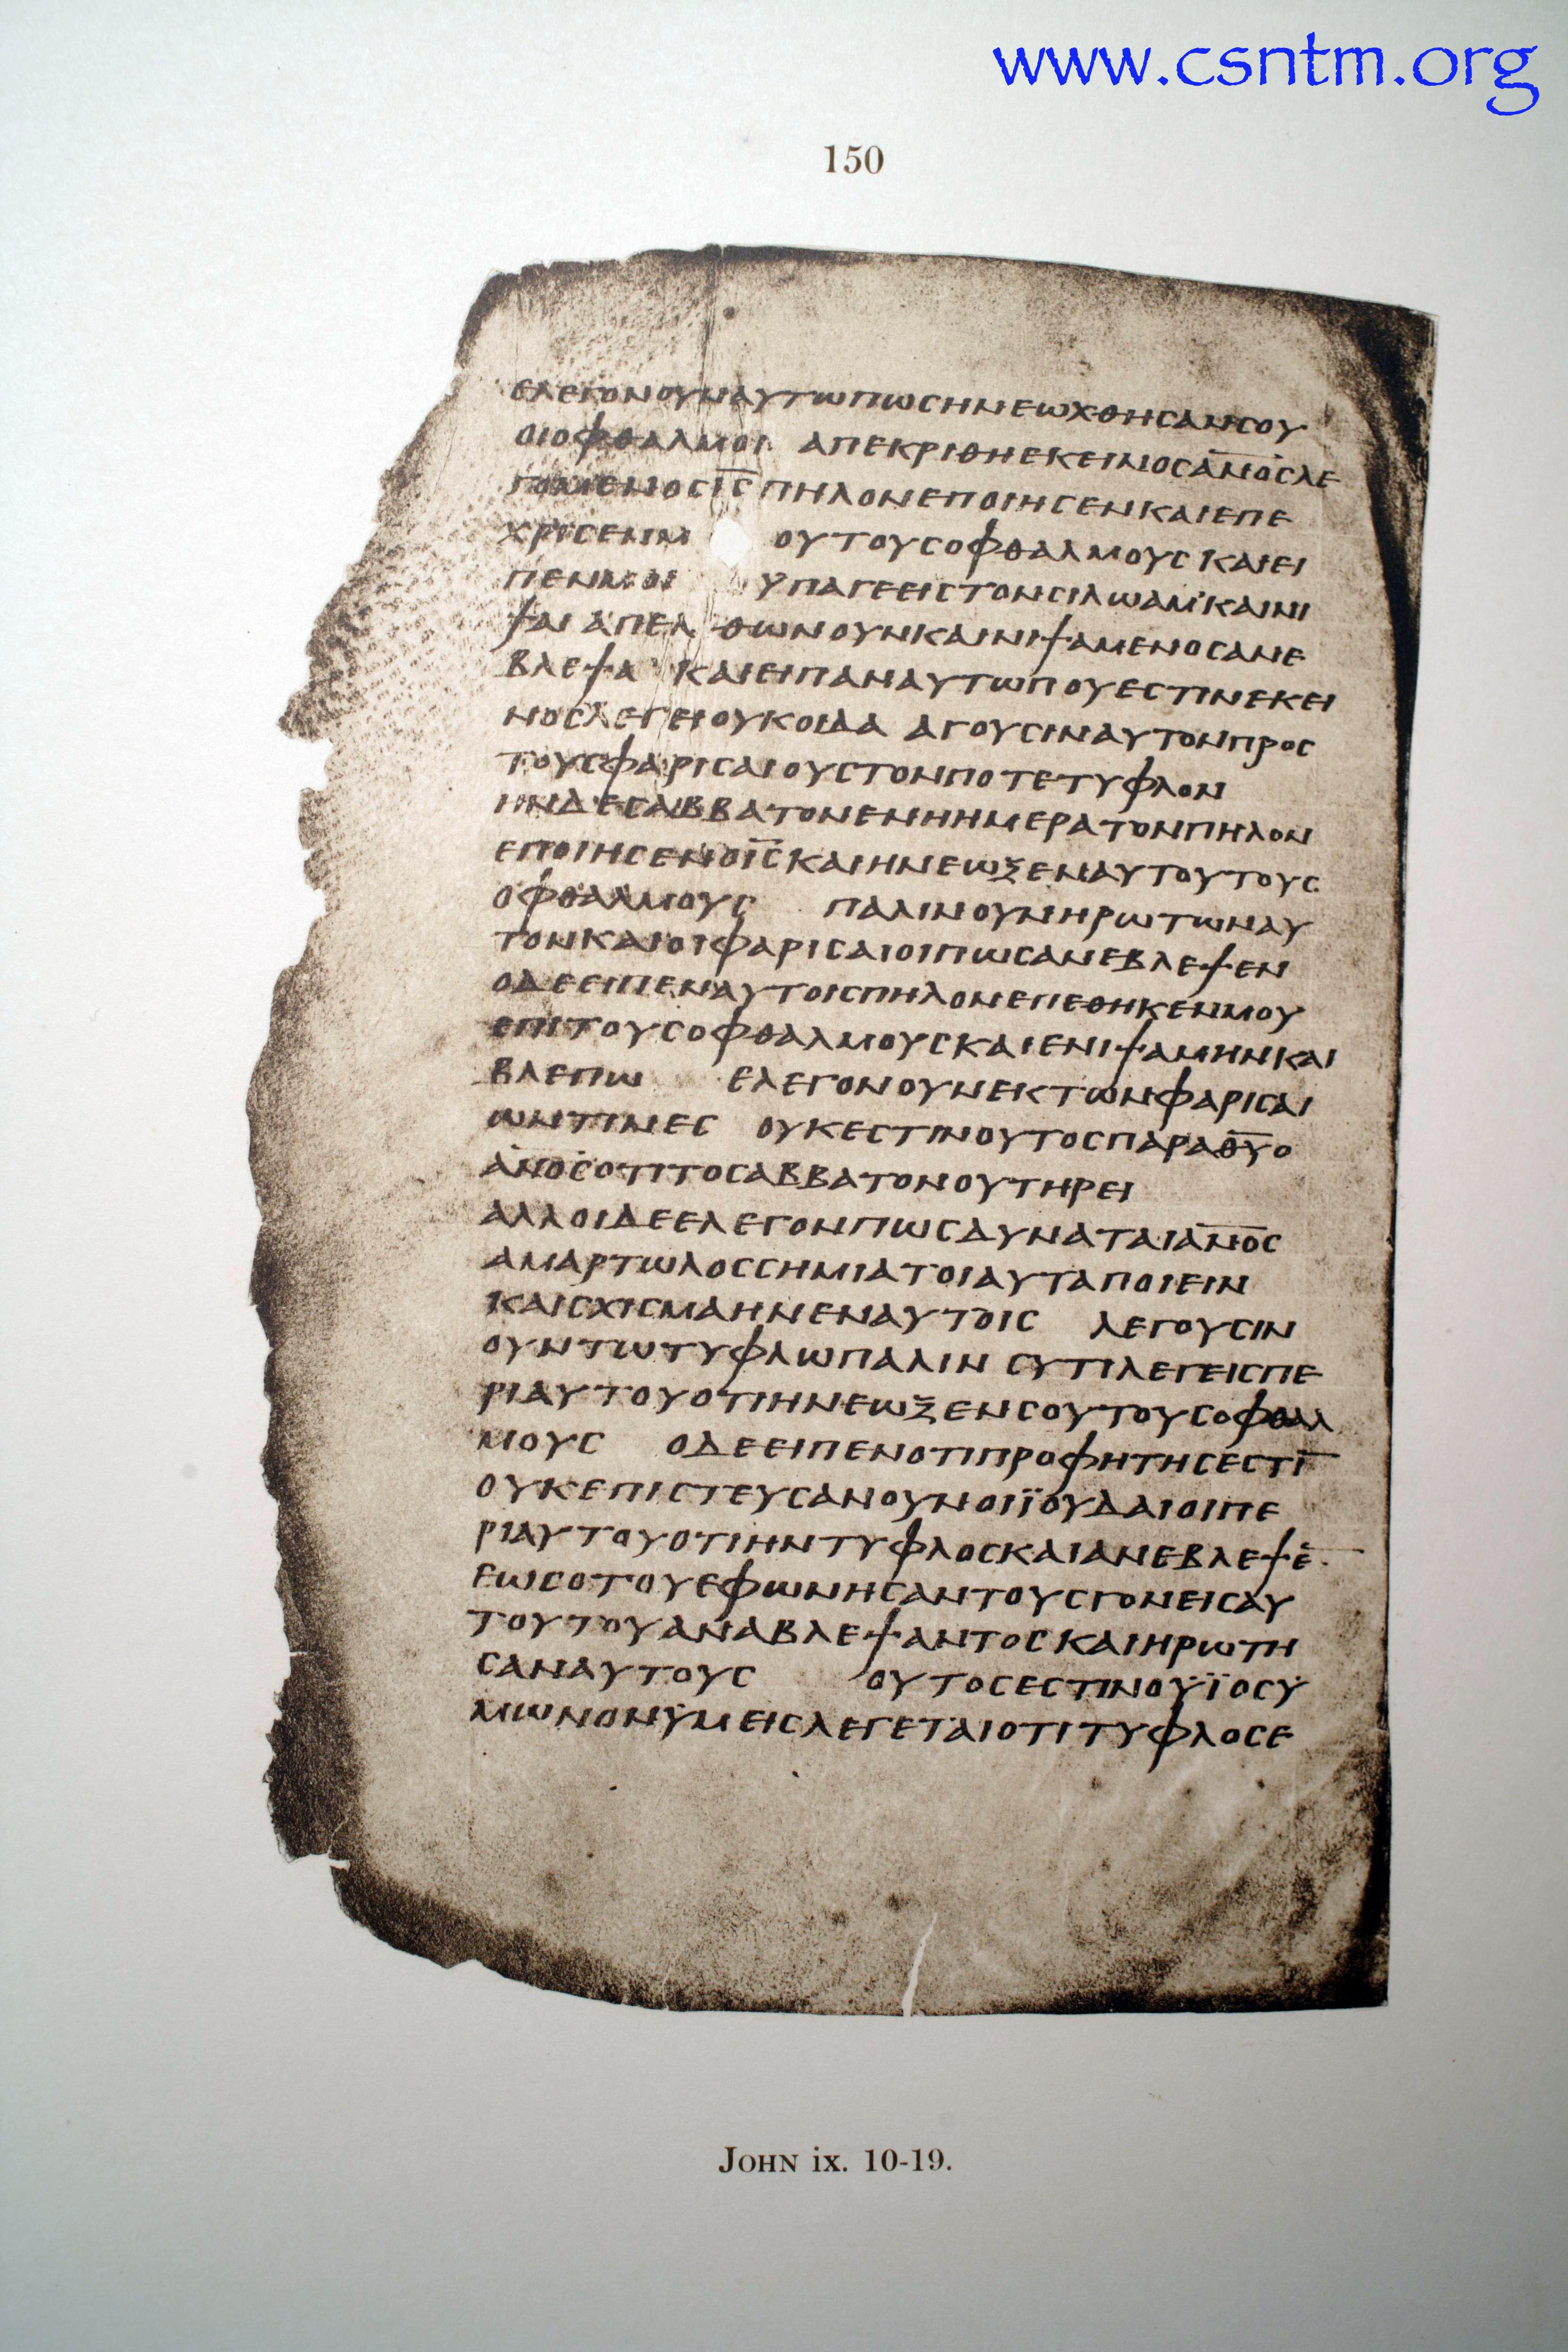 www.csntm.org
150
ΕΛΕΓΟΝΟΥΝΑΥΤΩΠΩCΗΝΕΩΧΘΗCΑΝCΟΥ
ΟΙΟΦΘΑΛΜΟΙ ΑΠΕΚΡΙΘΗΕΚΕΙΝΟCΑ̅Ν̅Ο̅C̅ΛΕ
ΓΟΜΕΝΟCΙ̅C̅ΠΗΛΟΝΕΠΟΙΗCΕΝΚΑΙΕΠΕ
ΧΡΙCΕΝΜ ΟΥΤΟΥCΟΦΘΑΛΜΟΥCΚΑΙΕΙ
ΠΕΝΜΟΙ ΥΠΑΓΕΕΙCΤΟΝCΙΛΩΑΜΚΑΙΝΙ
ΨΑΙ ΑΠΕΛ ΘΩΝΟΥΝΚΑΙΝΙΨΑΜΕΝΟCΑΝΕ
ΒΛΕΨΑ ΚΑΙΕΙΠΑΝΑΥΤΩΠΟΥΕCΤΙΝΕΚΕΙ
ΝΟCΛΕΓΕΙΟΥΚΟΙΔΑ ΑΓΟΥCΙΝΑΥΤΟΝΠΡΟC
ΤΟΥCΦΑΡΙCΑΙΟΥCΤΟΝΠΟΤΕΤΥΦΛΟΝ
ΗΝΔΕCΑΒΒΑΤΟΝΕΝΗΗΜΕΡΑΤΟΝΠΗΛΟΝ
ΕΠΟΙΗCΕΝΟΙ̅C̅ΚΑΙΗΝΕΩΞΕΝΑΥΤΟΥΤΟΥC
ΟΦΘΑΛΜΟΥC ΠΑΛΙΝΟΥΝΗΡΩΤΩΝΑΥ
ΤΟΝΚΑΙΟΙΦΑΡΙCΑΙΟΙΠΩCΑΝΕΒΛΕΨΕΝ
ΟΔΕΕΙΠΕΝΑΥΤΟΙCΠΗΛΟΝΕΠΕΘΗΚΕΝΜΟΥ
ΕΠΙΤΟΥCΟΦΘΑΛΜΟΥCΚΑΙΕΝΙΨΑΜΗΝΚΑΙ
ΒΛΕΠΩ ΕΛΕΓΟΝΟΥΝΕΚΤΩΝΦΑΡΙCΑΙ
ΩΝΤΙΝΕC ΟΥΚΕCΤΙΝΟΥΤΟCΠΑΡΑΘ̅Υ̅Ο
Α̅Ν̅Ο̅C̅ΟΤΙΤΟCΑΒΒΑΤΟΝΟΥΤΗΡΕΙ
ΑΛΛΟΙΔΕΕΛΕΓΟΝΠΩCΔΥΝΑΤΑΙΑ̅Ν̅Ο̅C̅
ΑΜΑΡΤΩΛΟCCΗΜΙΑΤΟΙΑΥΤΑΠΟΙΕΙΝ
ΚΑΙCΧΙCΜΑΗΝΕΝΑΥΤΟΙC ΛΕΓΟΥCΙΝ
ΟΥΝΤΩΤΥΦΛΩΠΑΛΙΝ CΥΤΙΛΕΓΕΙCΠΕ
ΡΙΑΥΤΟΥΟΤΙΗΝΕΩΞΕΝCΟΥΤΟΥCΟΦΘΑΛ
ΜΟΥC ΟΔΕΕΙΠΕΝΟΤΙΠΡΟΦΗΤΗCΕCΤΙ̅
ΟΥΚΕΠΙCΤΕΥCΑΝΟΥΝΟΙΪΟΥΔΑΙΟΙΠΕ
ΡΙΑΥΤΟΥΟΤΙΗΝΤΥΦΛΟCΚΑΙΑΝΕΒΛΕΨΕ̅
ΕΩCΟΤΟΥΕΦΩΝΗCΑΝΤΟΥCΓΟΝΕΙCΑΥ
ΤΟΥΤΟΥΑΝΑΒΛΕΨΑΝΤΟCΚΑΙΗΡΩΤΗ
CΑΝΑΥΤΟΥC ΟΥΤΟCΕCΤΙΝΟΫΪΟCΫ
ΜΩΝΟΝΫΜΕΙCΛΕΓΕΤΑΙΟΤΙΤΥΦΛΟCΕ
JOHN ix. 10-19.